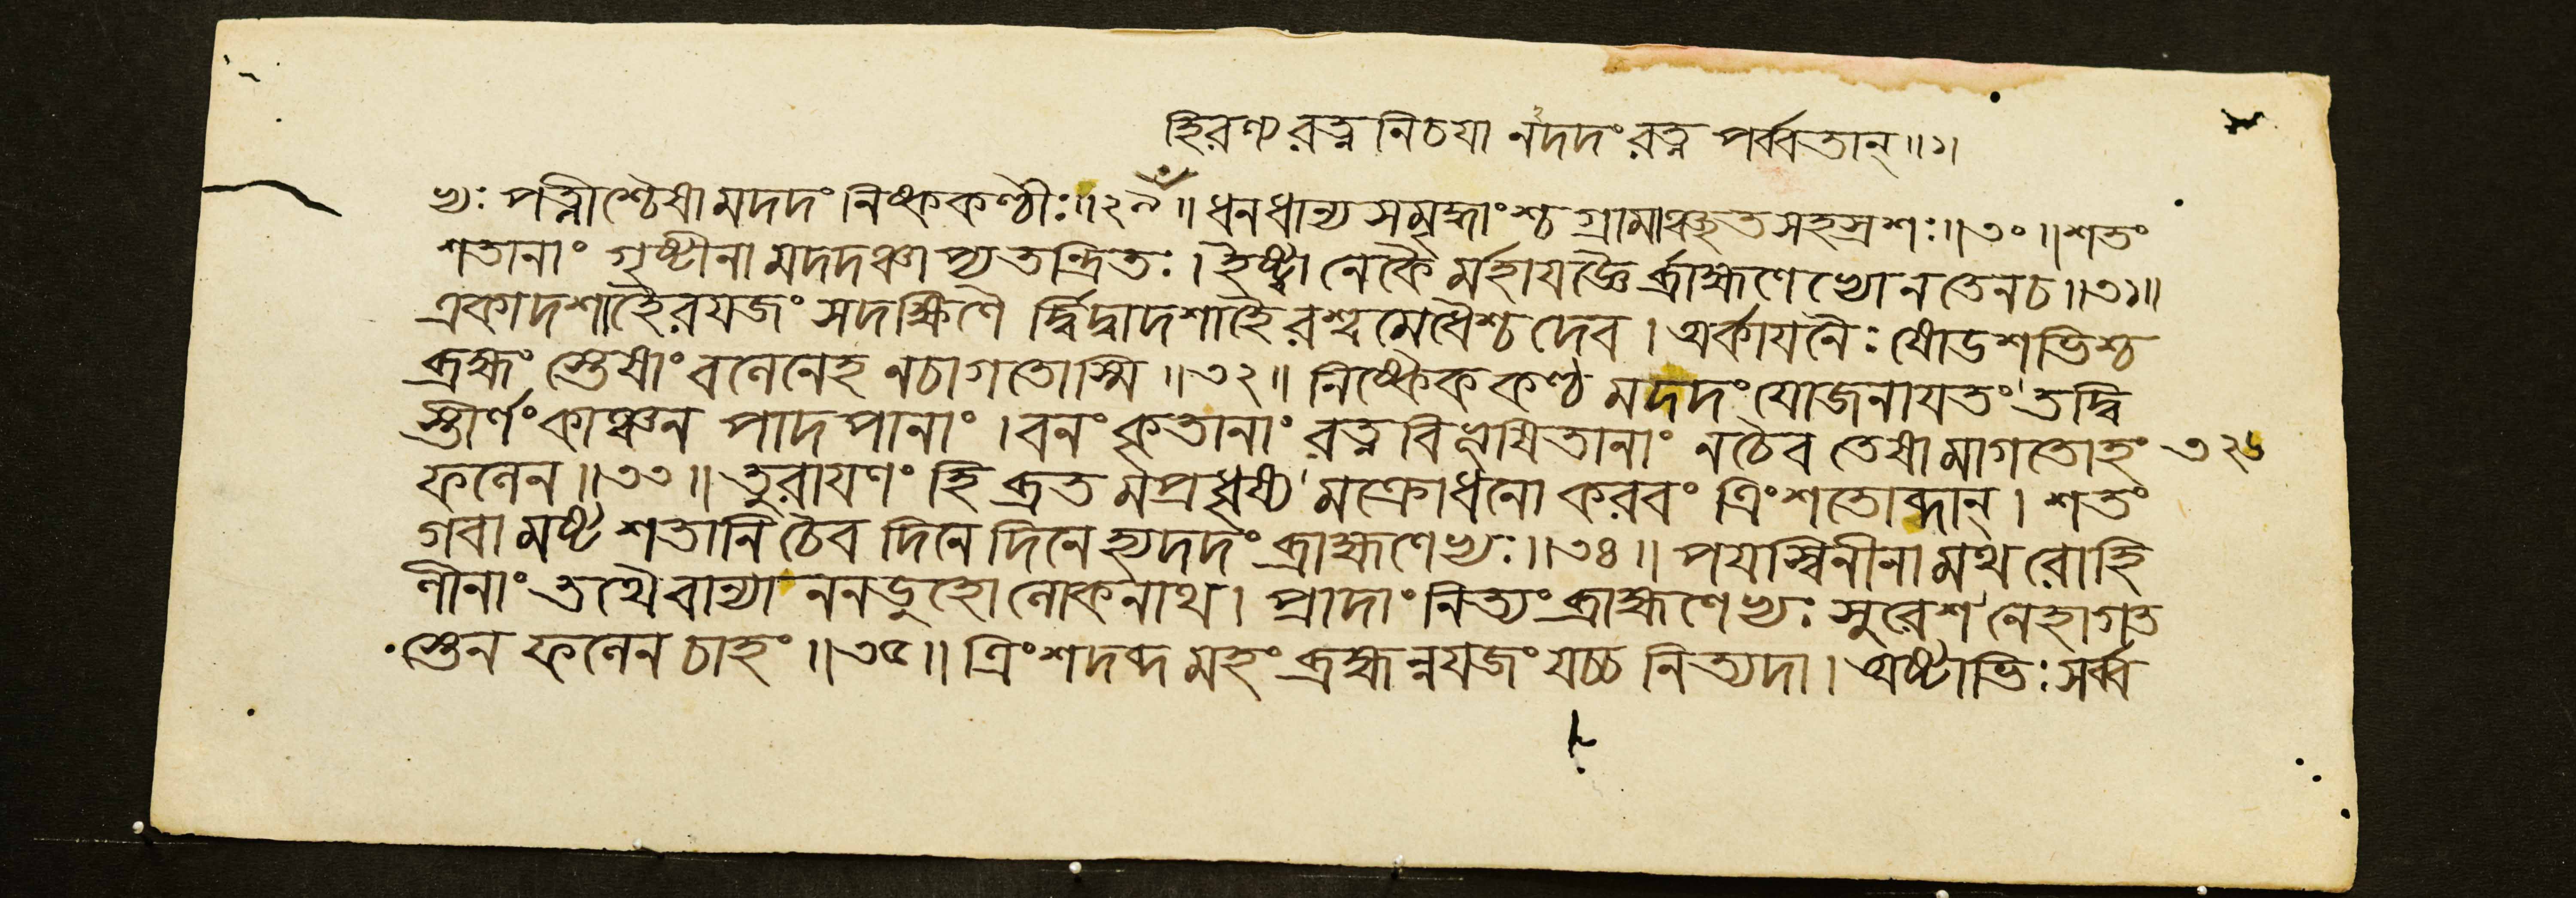 হিরণ্যরত্ননিচযানদদংরত্নপর্ব্বতান্॥১।
ভ্যঃ পত্নীশ্চৈষামদদং নিষ্ককণ্ঠীঃ॥২৯॥ ধনধান্যসমৃদ্ধাংশ্চ গ্রামাঞ্ছতসহস্রশঃ॥৩০॥ শতং
শতানাং গৃষ্টীনামদদঞ্চাপ্যতন্দ্রিতঃ। ইষ্ট্বানেকৈর্মহাযজ্ঞৈর্ব্রাহ্মণেভ্যোনতেনচ॥৩১॥
একাদশাহৈরযজং সদক্ষিণৈর্দ্বির্দ্বাদশাহৈরশ্বমেধৈশ্চ দেব। অর্কাযনৈঃ ষোডশভিশ্চ
ব্রহ্মং স্তেষাং বলেনেহ নচাগতোস্মি॥৩২॥ নিষ্কৈককণ্ঠমদদং যোজনাযতং তদ্বি
স্তীর্ণং কাঞ্চনপাদপানাং। বনং কৃতানাং রত্নবিভূষিতানাং নচৈব তেষামাগতোহং ৩২৬
ফলেন॥৩৩॥ তুরাযণং হি ব্রতমপ্রধৃষ্যমক্রোধনো করবং ত্রিংশতোব্দান্। শতং
গবামষ্টশতানি চৈব দিনে দিনে হ্যদদং ব্রাহ্মণেভ্যঃ॥৩৪॥ পযস্বিনীনামথ রোহি
ণীনাং তথৈবান্যাননডুহো লোকনাথ। প্রাদাং নিত্যং ব্রাহ্মণেভ্যঃ সুরেশ নেহাগত
স্তেন ফলেন চাহং॥৩৫॥ ত্রিংশদব্দমহং ব্রহ্মন্নযজং যচ্চ নিত্যদা। অষ্টাভিঃ সর্ব্ব